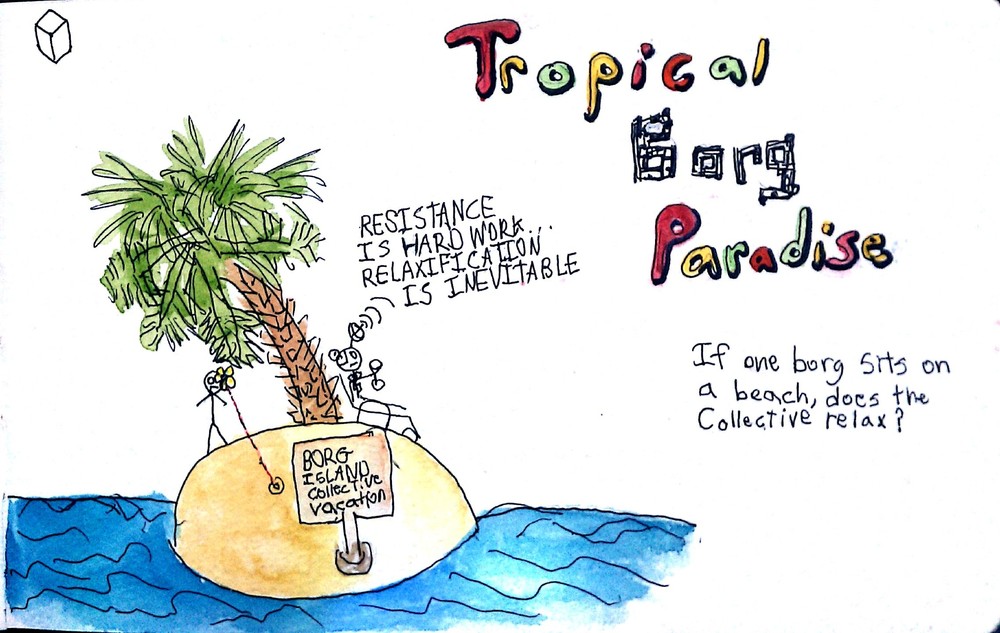 Tropical
Borg
Paradise
RESISTANCE
IS HARD WORK...
RELAXIFICATION
IS INEVITABLE
If one borg sits on
a beach, does the
Collective relax?
BORG
ISLAND
Collective
vacation